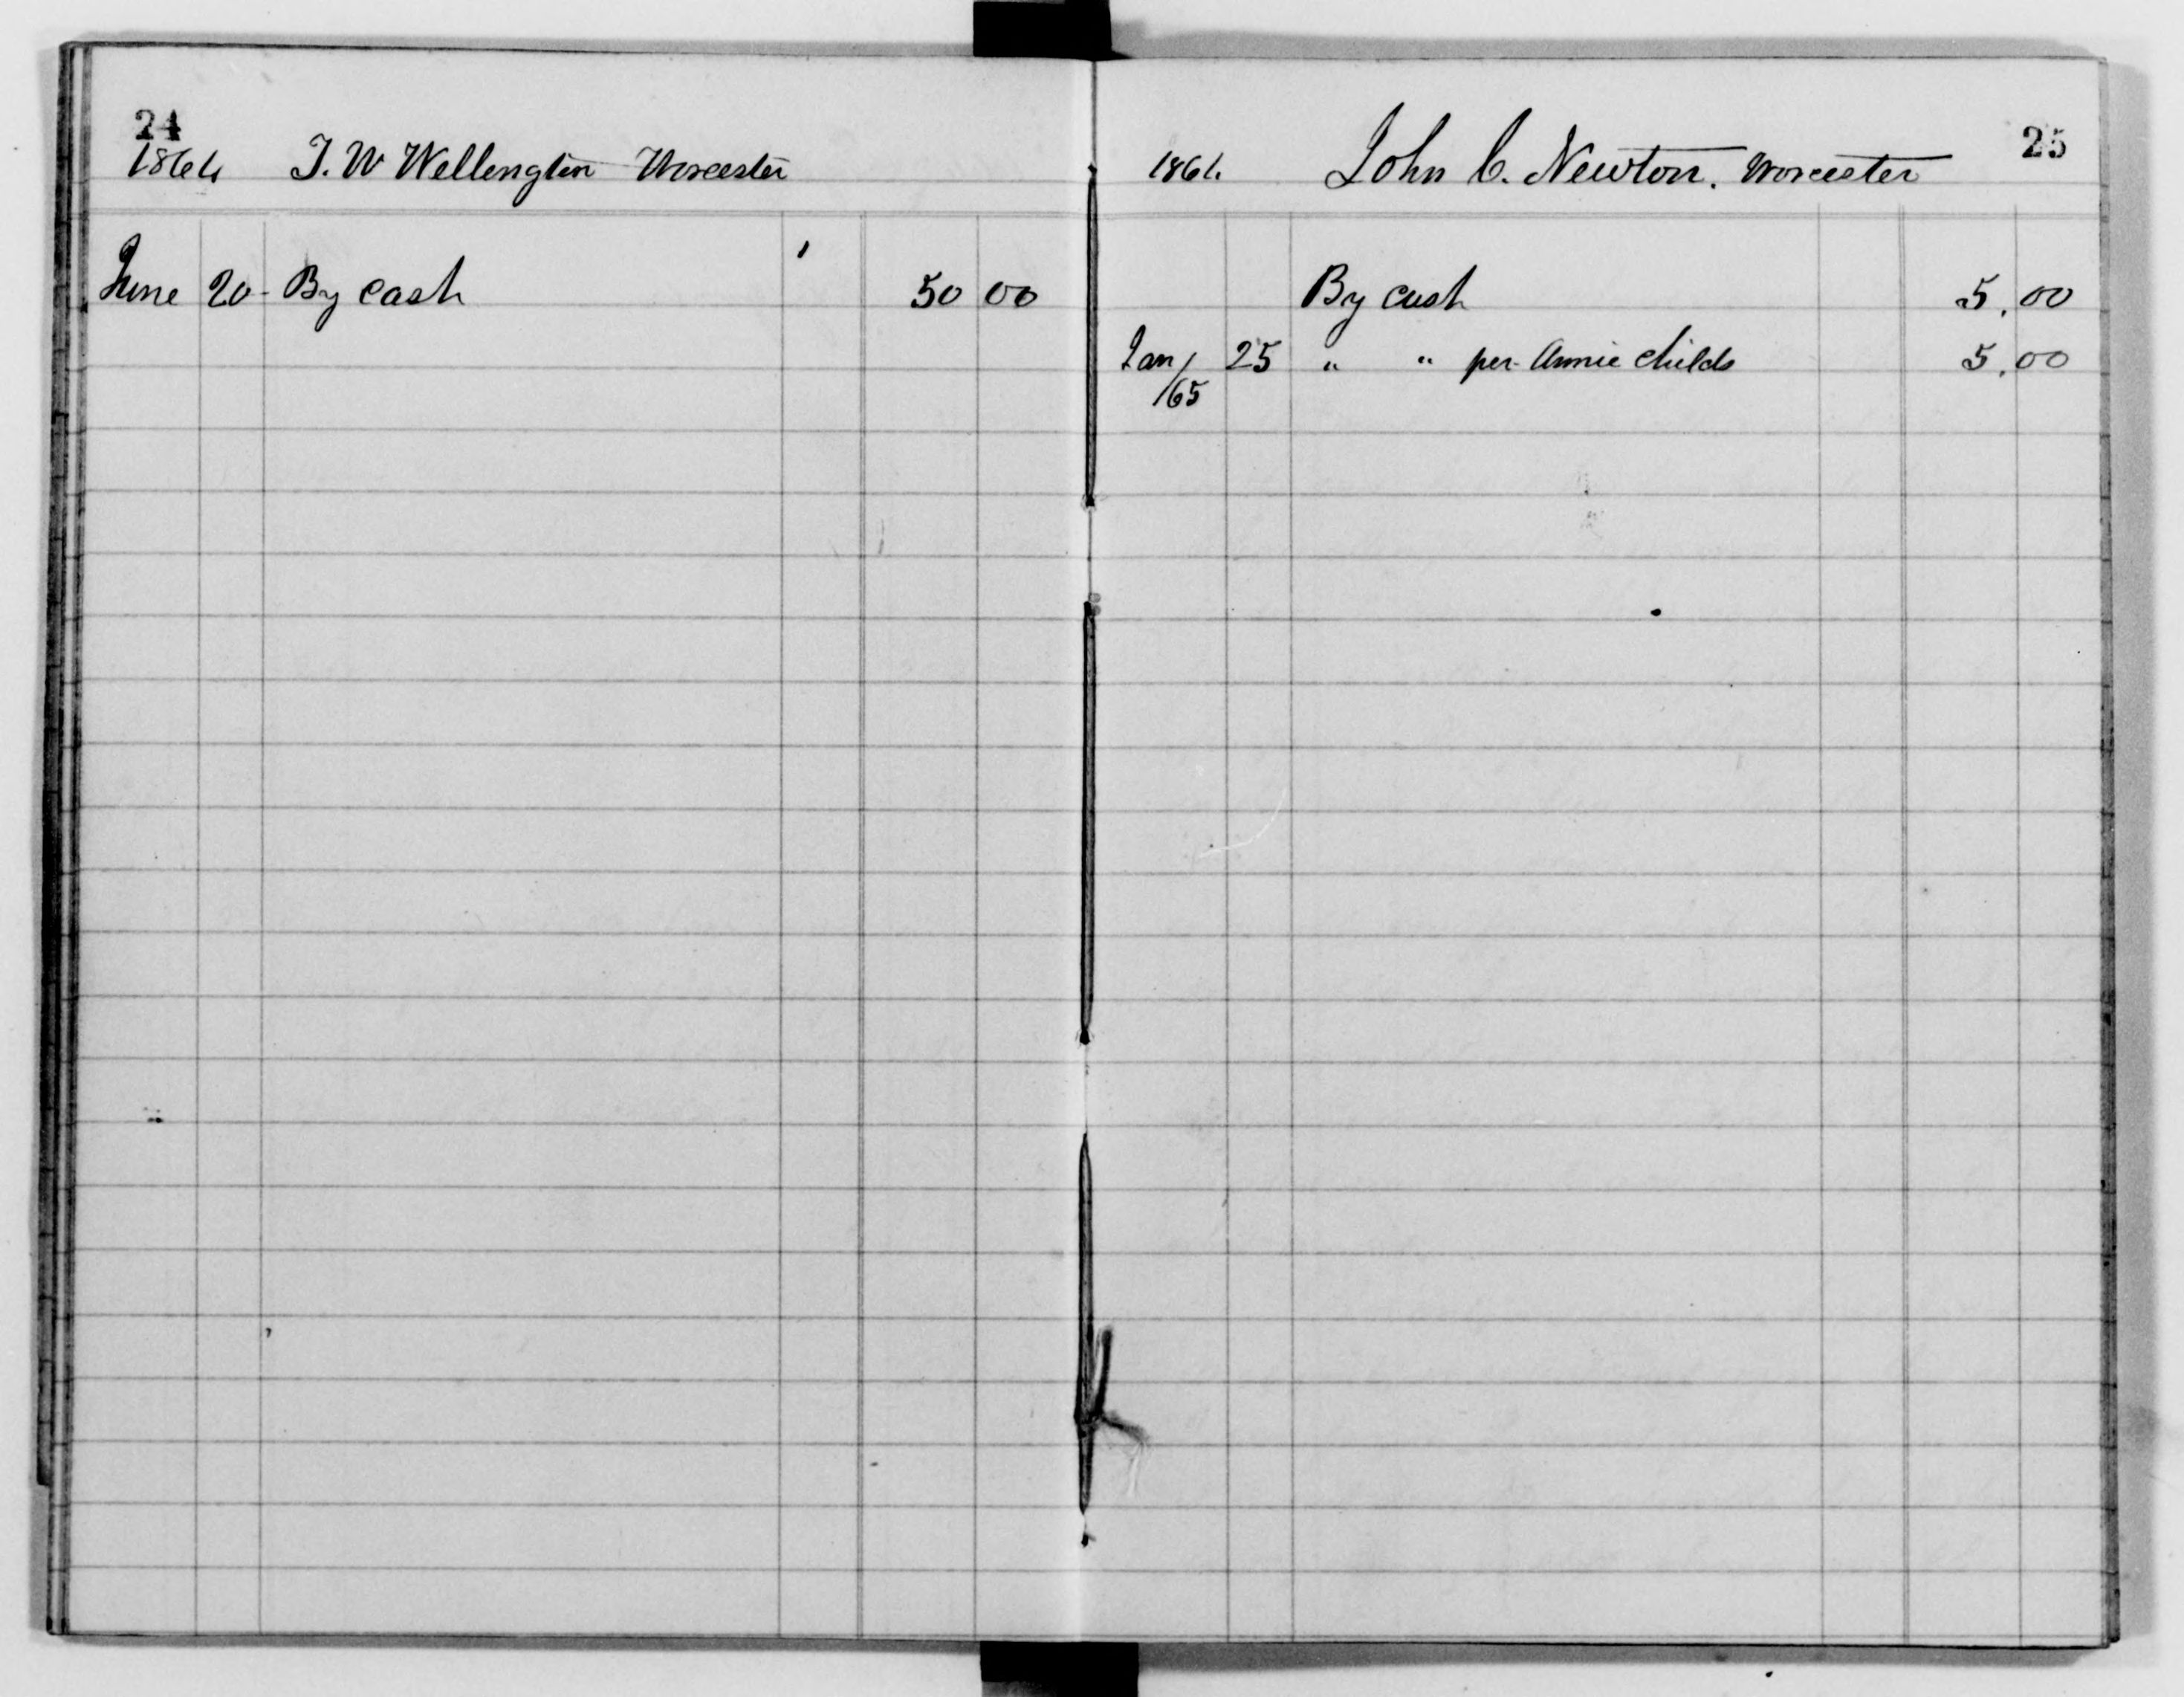 24
1864 T. W Wellengton Worcester
June 20 - By cash 50 00
25
1864 John C. Newton. Worcester
By cash 5. 00
Jan / 25 " " per Annie Childs 5. 00
/65